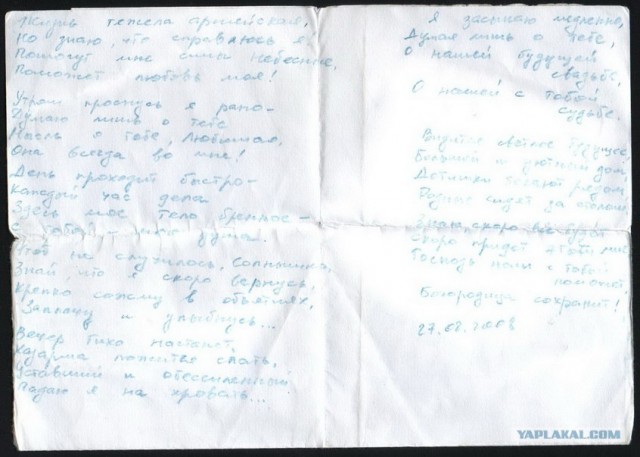 Жизнь тяжела армейская,
Но знаю, что справлюсь я,
Помогут мне силы небесные,
Поможет любовь моя!
Утром проснусь я рано-
Думаю лишь о тебе
Мысль о тебе, любимая,
Она всегда во мне!
День проходит быстро-
Каждый час дела
Здесь мое тело бренное-
С тобой - моя душа.
Чтоб не случилось, солнышко,
Знай, что я скоро вернусь!
Крепко сожму в объятиях,
Заплачу и улыбнусь...
Вечер тихо настанет,
Казарма ложится спать,
Уставший и обессиленный
Падаю я на кровать...
Я засыпаю медленно,
Думая лишь о тебе,
О нашей будущей
свадьбе,
О нашей с тобой
судьбе.
Видится светлое будущее
Большой и уютный дом
Детишки бегают рядом
Родные сидят за столом
Знаю, скоро все будет
Скоро придет этот миг
Господь нам с тобой
поможет,
Богородица сохранит!
27.08.2008
YAPLAKAL.COM